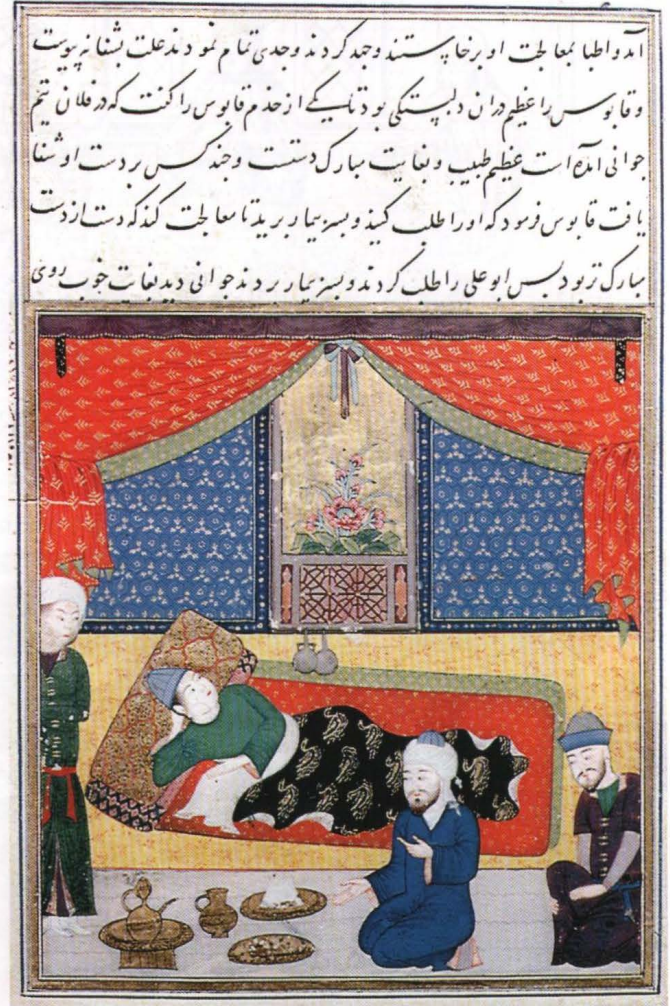 آمد و اطبا بمعالجت او برخاستند و جهد کردند و جدی تمام نمودند علت بشفا نه پیوست
و قابوس را عظیم در ان دلبستکی بود تا یکی از خدم قابوس را کفت که در فلان تیم
جوانی امده است عظیم طبیب و بغایت مبارک دستست و چند کس بر دست او شفا
یافت قابوس فرمود که او را طلب کنید و بسر بیمار برید تا معالجت کند که دست از دست
مبارک تر بود بس ابو علی را طلب کردند و بسر بیمار بردند جوانی دید بغایت خوب روی